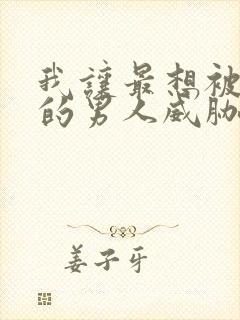 我让最想被
的男人威胁
姜子牙